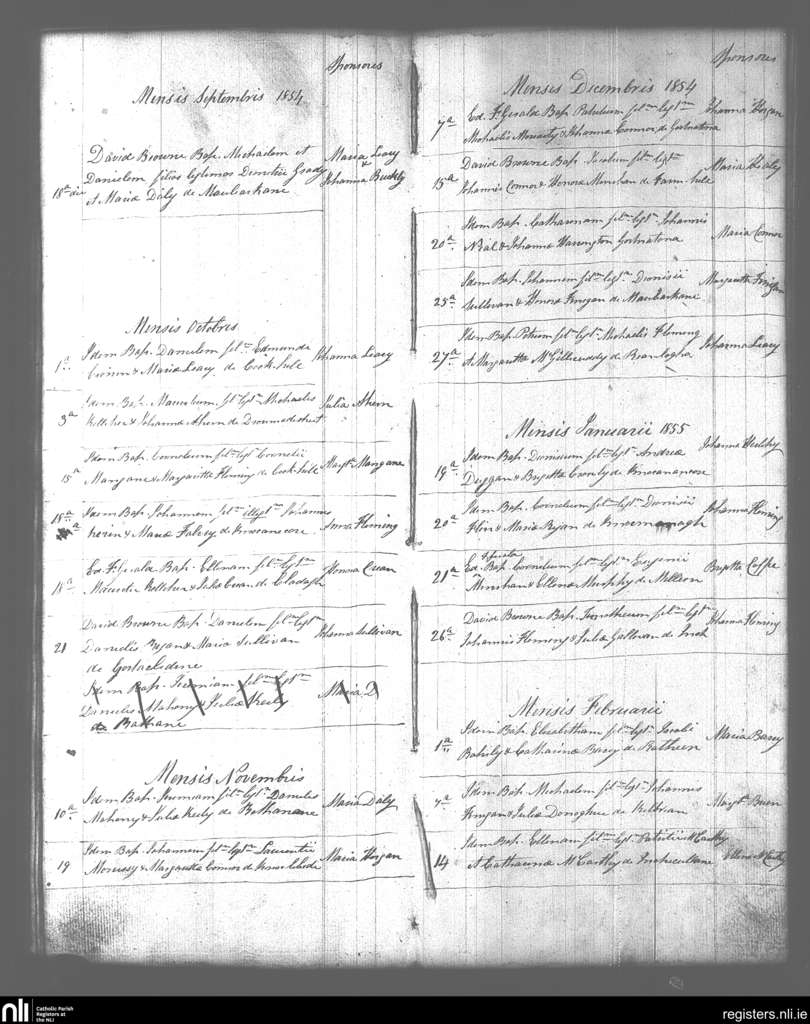 Sponsores
Mensis Septembris 1854
David Browne Bap. Michaelem et
Danielem filios legtimos Demetrii Grady
18a die et Maria Daly de Maubarkane
Maria Leary
&
Johanna Buckly
Mensis Octobris
Idem Bap. Danielem fil.m Edmundi
1a & Maria Leary de Cork-hill
Johanna Leary
Idem Bap. Mauritium fil. legt. Michaelis
3a Kelleher & Johanna Ahern de Dromadisteet
Julia Ahern
Idem Bap. Cornelium fil.m legt. Cornelii
15a Mangane & Margaritta Fleming de Cork-hill
Margt. Mangane
18a Idem Bap. Johannem fil.m illegt.m Johannis
& Maria Falvey de Knocancore
Anna Fleming
Ed. FGerald Bap. Ellenam fil.m legt.m
18a Kelleher & Julia Cuan de Cladagh
Honora Cuan
David Browne Bap. Danielem fil.m legt.m
21 Danielis Ryan & Maria Sullivan
de
Johanna Sullivan
Idem Bap. Jeremiam fil.m legt.m
Danielis Mahony & Julia Keily
de Rathane
Maria D
Mensis Novembris
Idem Bap. Jeremiam fil.m legt.m Danielis
10a Mahony & Julia Keily de Rathanane
Maria Daly
Idem Bap. Johannem fil.m legt.m Laurentii
19 Morrissy & Margaritta Connor de
Maria Horgan
Sponsores
Mensis Decembris 1854
Ed. FGerald Bap. Patritium fil.m legt.m
7a Michaelis Moriarty & Johanna Connor de Gortnatona
Johanna Horgan
David Browne Bap. Jacobum fil.m legt.m
15a Johannis Connor & Honora Minehan de Farm-hill
Maria Healy
Idem Bap. Catharinam fil.m legt.m Johannis
20a Neal & Johanna Warrington Gortnatona
Maria Connor
Idem Bap. Johannem fil.m legt.m Dionisii
25a Sullivan & Honora Finegan de Maubarkane
Margaritta Finigan
Idem Bap. Petrum fil. legt. Michaelis Fleming
27a et Margaritta McGillicuddy de
Johanna Leary
Mensis Januarii 1855
Idem Bap. Dionisium fil.m legt. Andrea
19a Duggan & Brigitta Cronly de Knocanancore
Johanna
Idem Bap. Cornelium fil.m legt.m Dionisii
20a Flin & Maria Ryan de
Johanna Fleming
FGerald
21a Ed. Bap. Cornelium fil.m legt.m Eugenii
Minehan & Ellena Murphy de Milleen
Brigitta Cuffe
David Browne Bap. Timotheum fil.m legt.m
26a Johannis Fleming & Julia Gallivan de Inch
Johanna Fleming
Mensis Februarii
Idem Bap. Elizabetham fil.m legt. Jacobi
1a & Catharina Barry de Ratheen
Maria Barry
Idem Bap. Michaelem fil.m legt. Johannis
7a Finegan & Julia Donoghue de
Margt.
Idem Bap. Ellenam fil.m legt. Patritii McCarthy
14 et Catharina McCarthy de Inchicullane
Ellena McCarthy
nli
Catholic Parish
Registers at
the NLI
registers.nli.ie